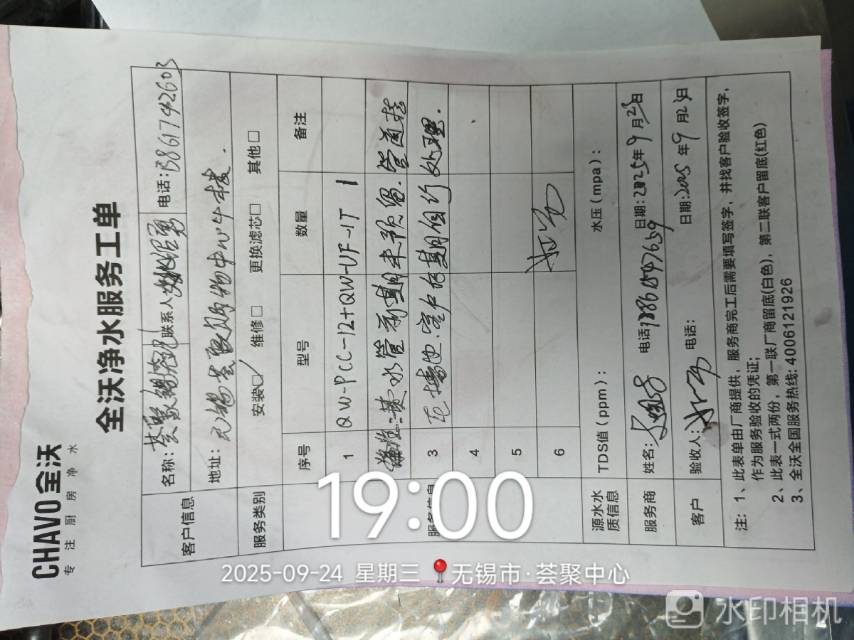 CHAVO全沃
专注厨房净水
全沃净水服务工单
客户信息
名称：
联系人
电话：13861742603
地址：无锡荟聚购物中心4楼.
服务类别
安装☑ 维修□ 更换滤芯□ 其他□
序号 型号 数量 备注
1 QW-PCC-12+QW-UF-1T 1
水管前期未预留.管道
3 后期自行处理.
4
5
6
源水水质信息
TDS值（ppm）： 水压（mpa）：
服务商 姓名： 电话 日期：2025年9月23日
客户 验收人： 电话： 日期：2025年9月23日
注：1、此表单由厂商提供，服务商完工后需要填写签字，并找客户验收签字，
作为服务验收的凭证；
2、此表一式两份，第一联厂商留底(白色)，第二联客户留底(红色)
3、全沃全国服务热线：4006121926
19:00
2025-09-24 星期三 无锡市·荟聚中心
水印相机